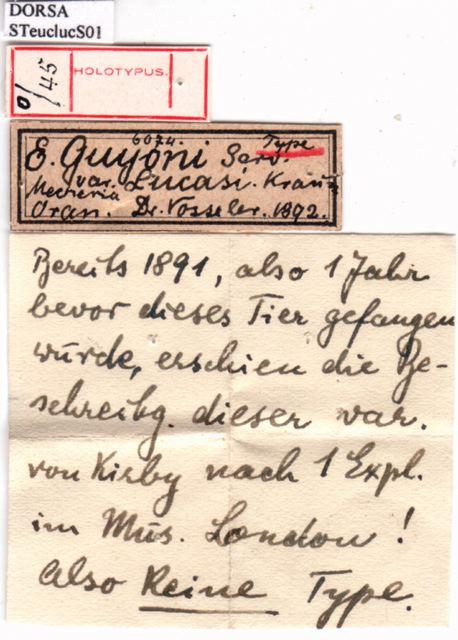 DORSA
STeuclucS01
0/45
HOLOTYPUS.
6074.
Type
E. Guyoni Serv.
var. Lucasi. Krauß
Mecheria
Oran. Dr. Vosseler. 1892.
Bereits 1891, also 1 Jahr
bevor dieses Tier gefangen
wurde, erschien die Be-
schreibg. dieser var.
von Kirby nach 1 Expl.
im Mus. London!
Also Keine Type.